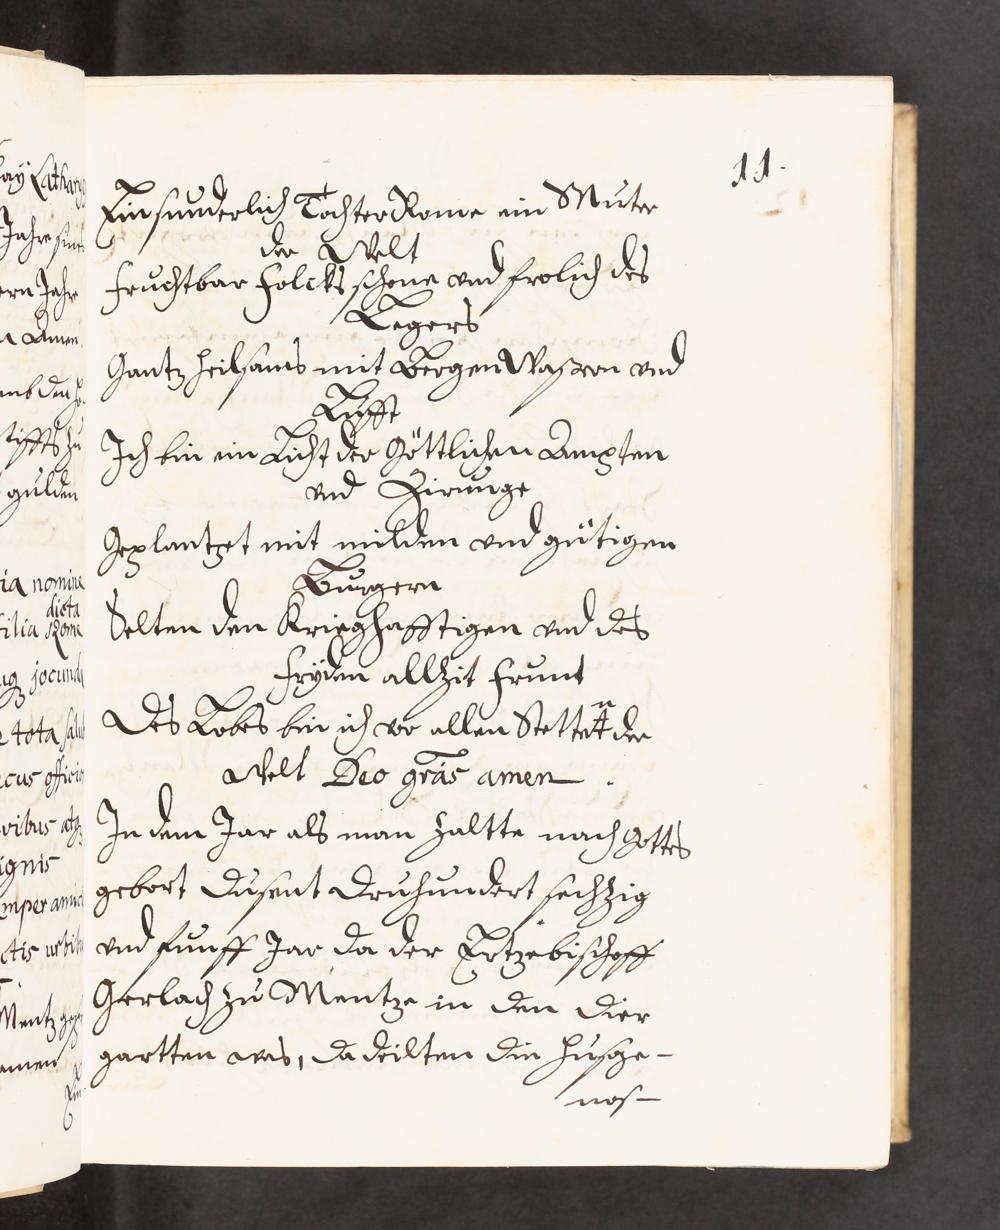 11.
Ein sunderlich Tochter Rome ein Muter
der Welt
fruchtbar folcks schone vnd frolich des
Legers
Gantz heilsams mit Bergen Waszern vnd
Lufft
Ich bin ein Licht der Göttlichen Ampten
vnd Zirunge
Geplantzet mit milden vnd gütigen
Burgern
Selten den Krieghafftigen vnd des
fryden allzit frunt
Des Lobes bin ich vor allen Stetten der
Welt Deo gras amen .
In dem Jar als man zaltte nach Gottes
gebort dusent druhundert sechzig
vnd funff Jar da der Ertzebischoff
Gerlach zu Mentze in den dier
gartten was, da deilten die husge-
nos-
Jahre
Jahre
Amen.
gulden
nomine
dicta
filia Rome
jocunda
tota
atq
ignis
semper
Mentz
amen
Ein